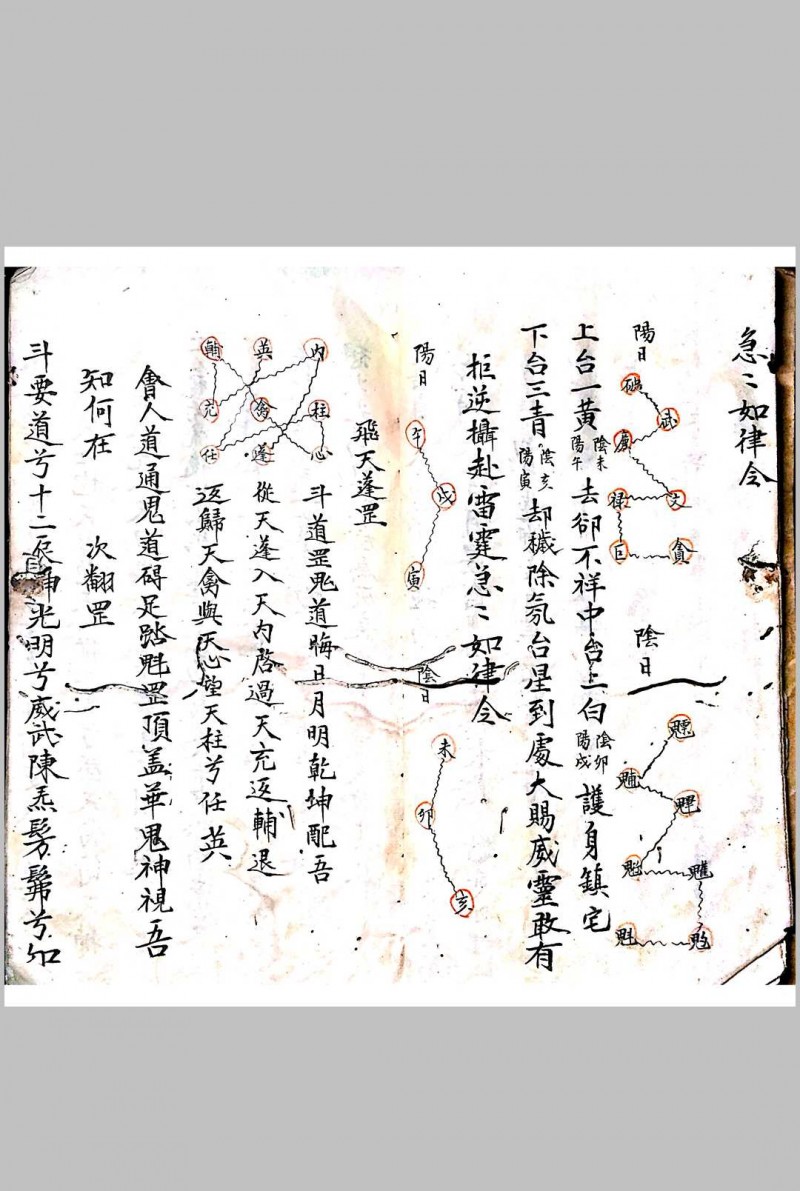 急〻如律令
陽日
破
武
廉
文
祿
巨
貪
陰日
上台一黃
陰未
陽午
去卻不祥中台二白
陰卯
陽戌
護身鎮宅
下台三青
陰亥
陽寅
却穢除氛台星到處大賜威靈敢有
拒逆攝赴雷霆急〻如律令
陽日
午
戌
寅
陰日
未
卯
亥
飛天蓬罡
內
柱
心
英
禽
蓬
輔
充
任
斗道罡鬼道晦日月明乾坤配吾
從天蓬入天內啓過天充返輔退
返歸天禽與天心望天柱兮任英
會人道通鬼道碍足踏魁罡頂盖華鬼神視吾
知何在
次翻罡
斗要道兮十二辰
光明兮威武陳炁髣髴兮如